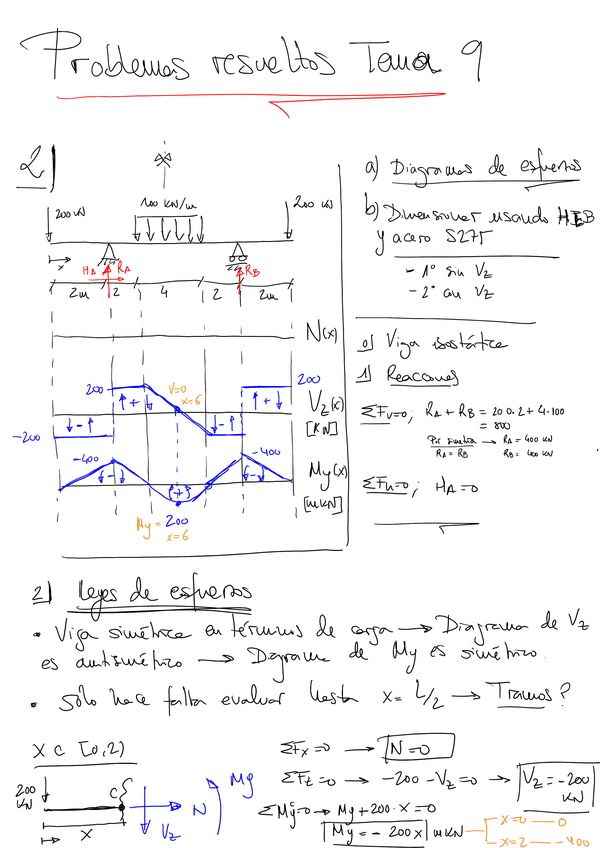 Problemas resueltos Tema 9
2)
200 kN
100 kN/m
200 kN
x
HA
RA
RB
2m
2
4
2
2m
N(x)
200
V=0
x=6
200
Vz(x)
[kN]
-200
-400
-400
My(x)
[mkN]
My = 200
x=6
a) Diagramas de esfuerzos
b) Dimensionar usando HEB
y acero S275
- 1º sin Vz
- 2º con Vz
0) Viga isostática
1) Reacciones
ΣFv=0; RA + RB = 200·2 + 4·100
= 800
Por simetría → RA = 400 kN
RA = RB RB = 400 kN
ΣFH=0; HA=0
2) Leyes de esfuerzos
• Viga simétrica en términos de carga → Diagrama de Vz
es antisimétrico → Diagrama de My es simétrico.
• Sólo hace falta evaluar hasta x = L/2 → Tramos?
x ∈ [0,2)
200
kN
C
x
N
Vz
My
ΣFx=0 → N=0
ΣFz=0 → -200 - Vz=0 → Vz=-200
kN
ΣMyᶜ=0 → My+200·x=0
My = -200x mkN
x=0 — 0
x=2 — -400